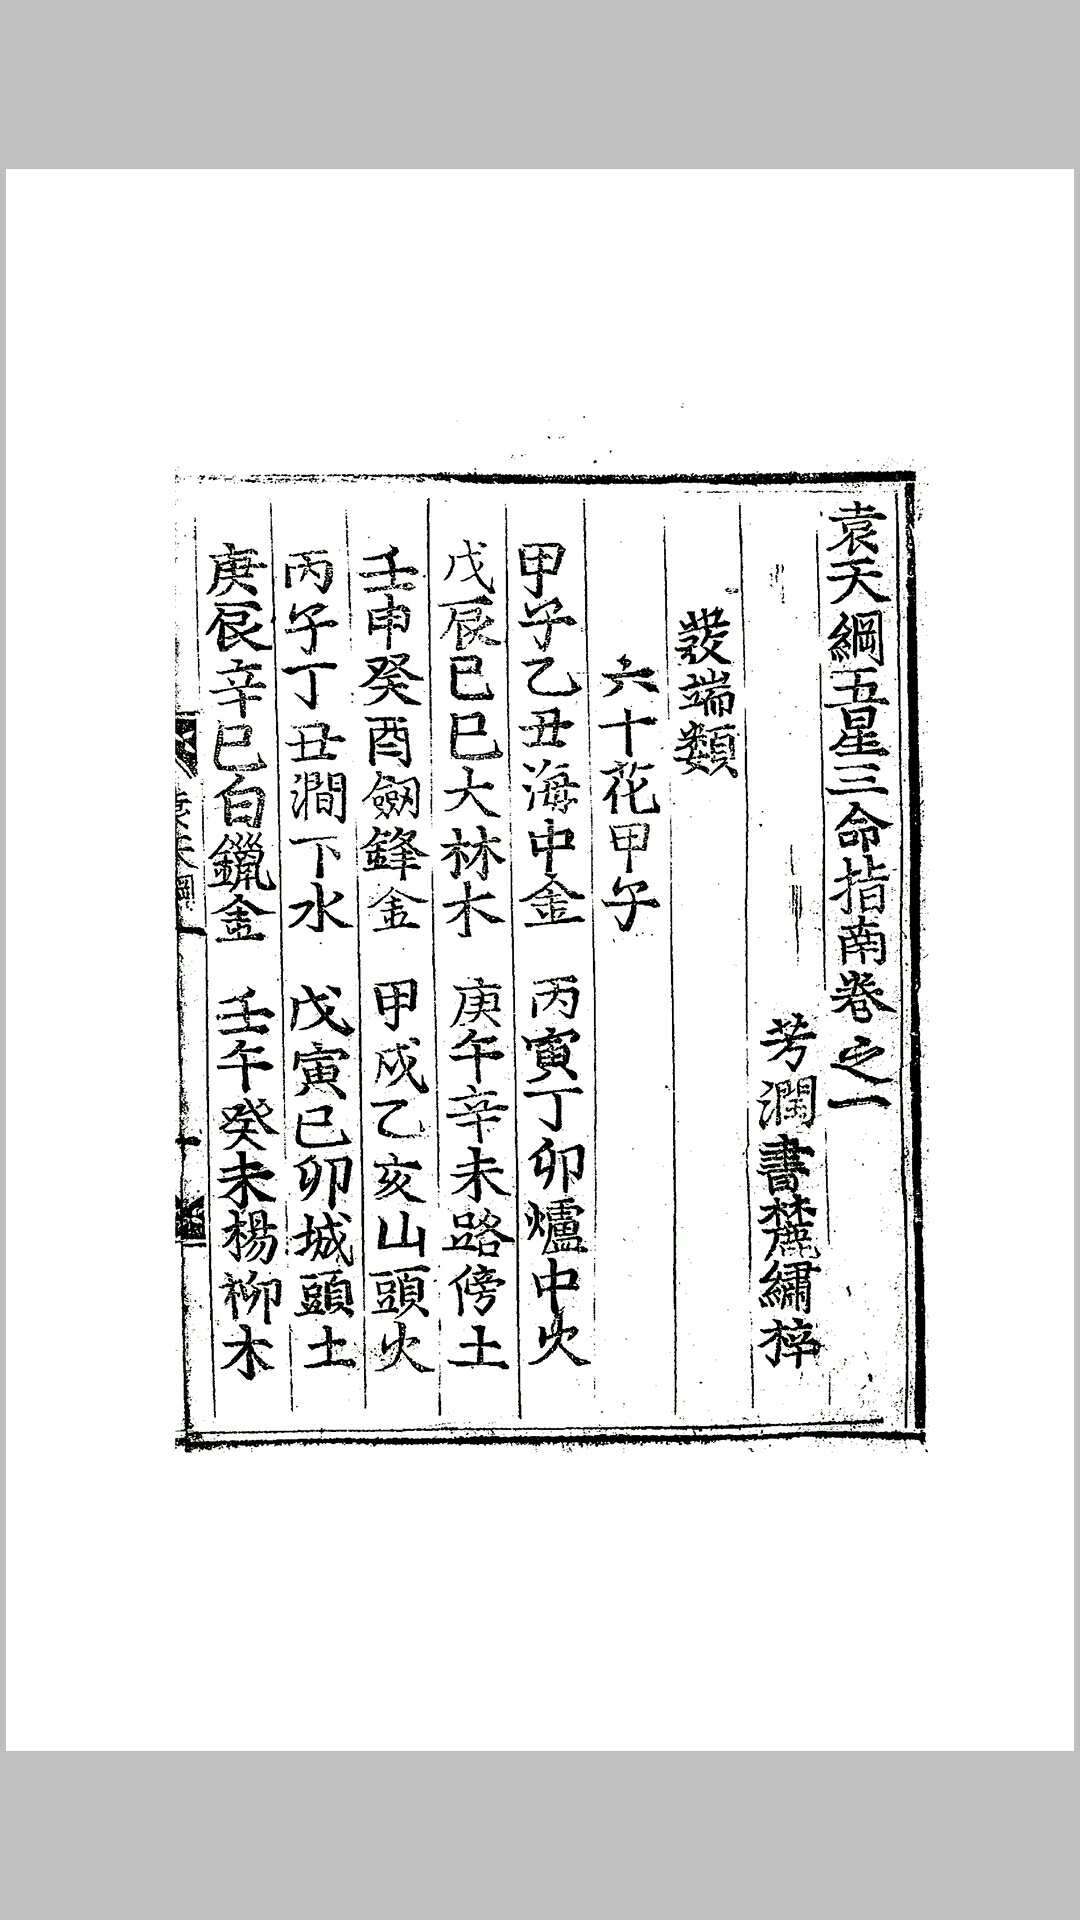 袁天綱五星三命指南卷之一
芳澗書麓繡梓
發端類
六十花甲子
甲子乙丑海中金　丙寅丁卯爐中火
戊辰己巳大林木　庚午辛未路傍土
壬申癸酉劒鋒金　甲戌乙亥山頭火
丙子丁丑澗下水　戊寅己卯城頭土
庚辰辛巳白鑞金　壬午癸未楊柳木
袁天綱